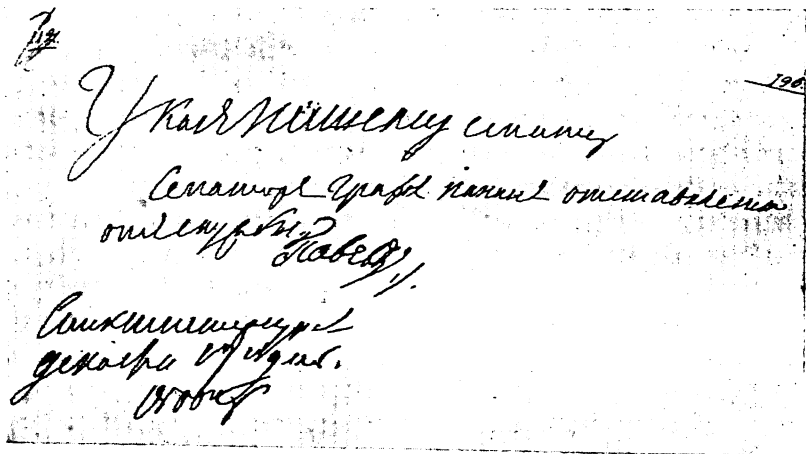 196.
Указъ нашему сенату
Сенаторъ Графъ Панинъ отставляется
отъ службы.
Павелъ
Санктпетербургъ
декабря 17 дня.
1800 г